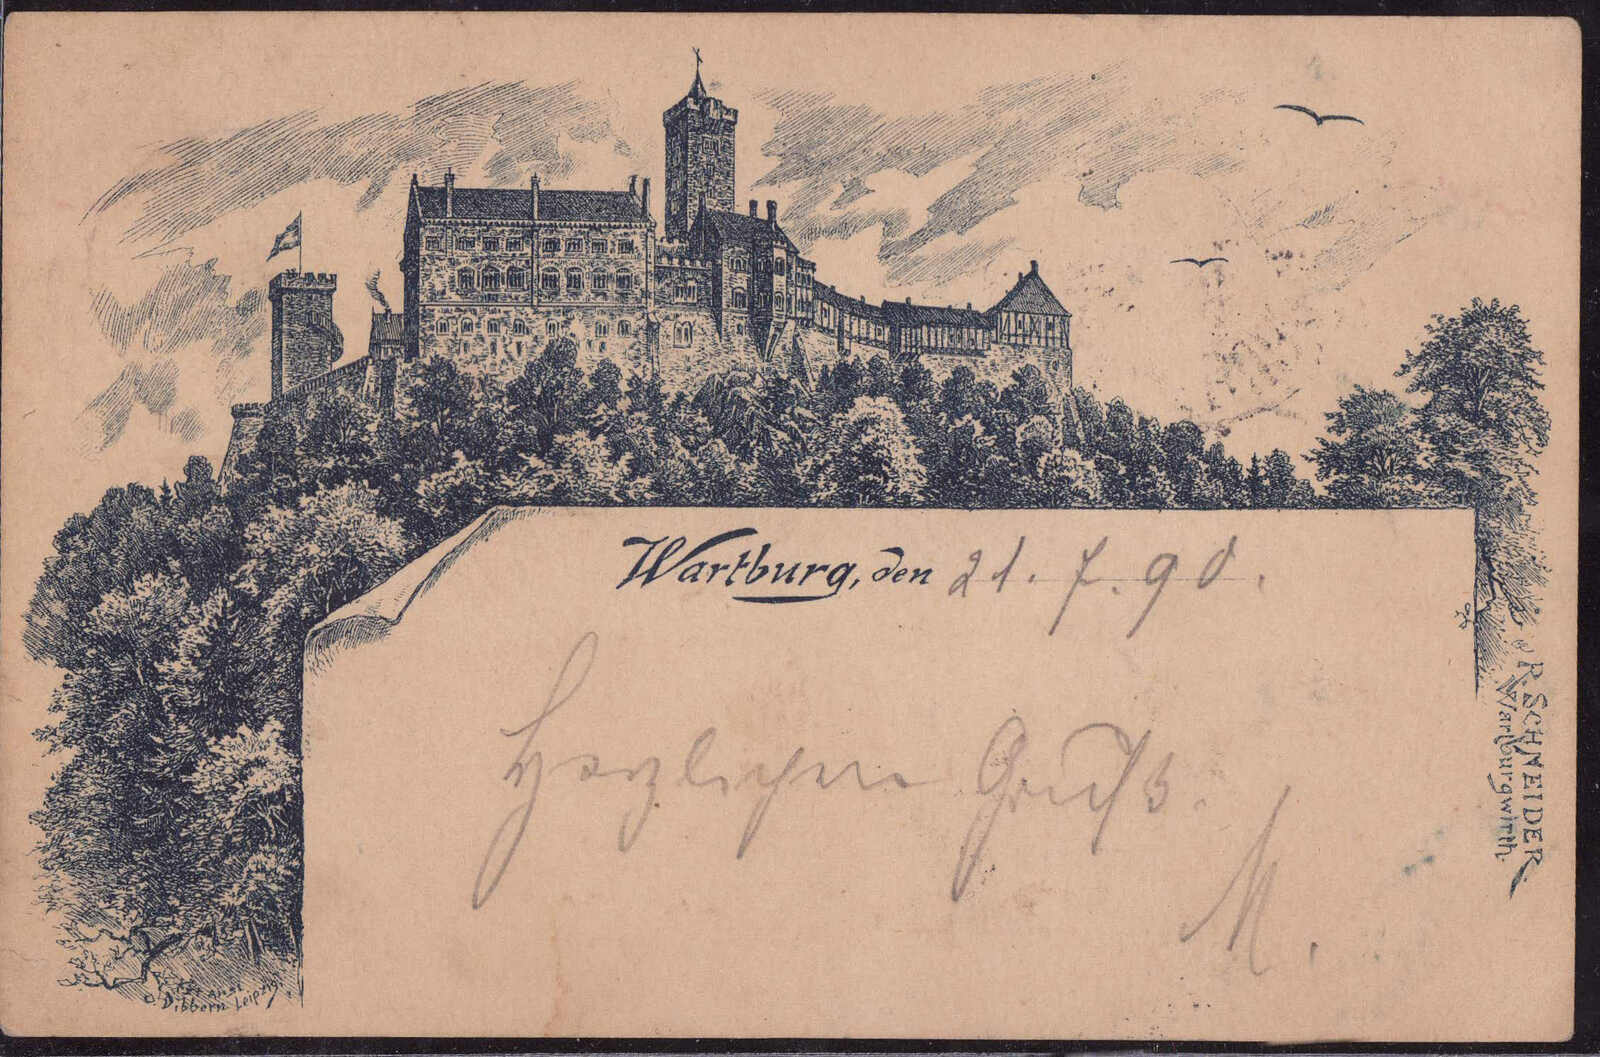 Wartburg, den 21. 7. 90.
Herzlichen Gruß.
M.
R. SCHNEIDER.
Wartburgwirth.
Dibbern Leipzig.